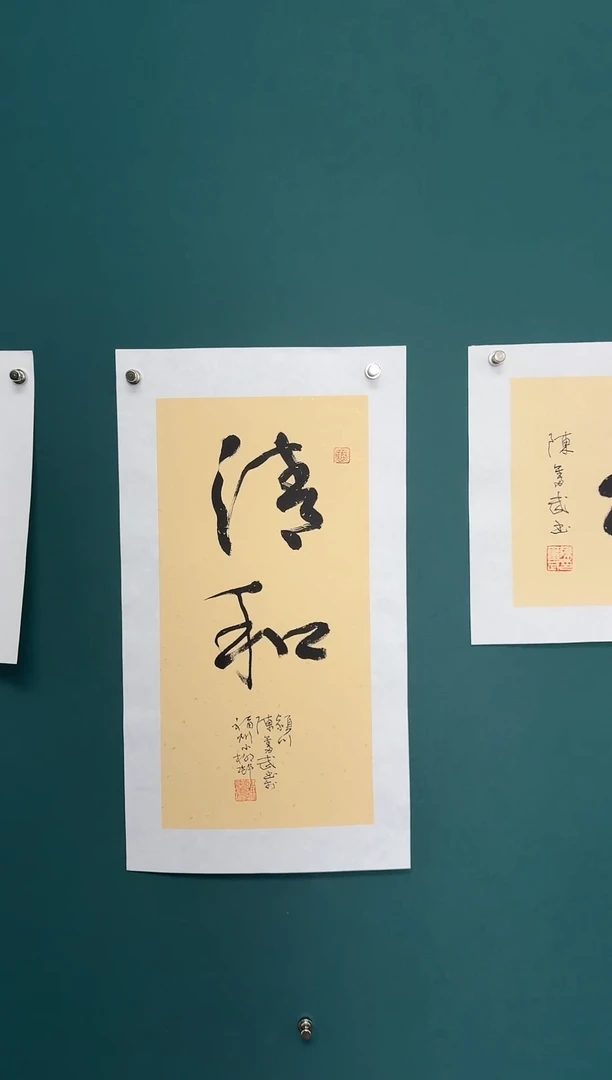 清
和
穎川
陳
書於
福州小柳邨
陳
武書